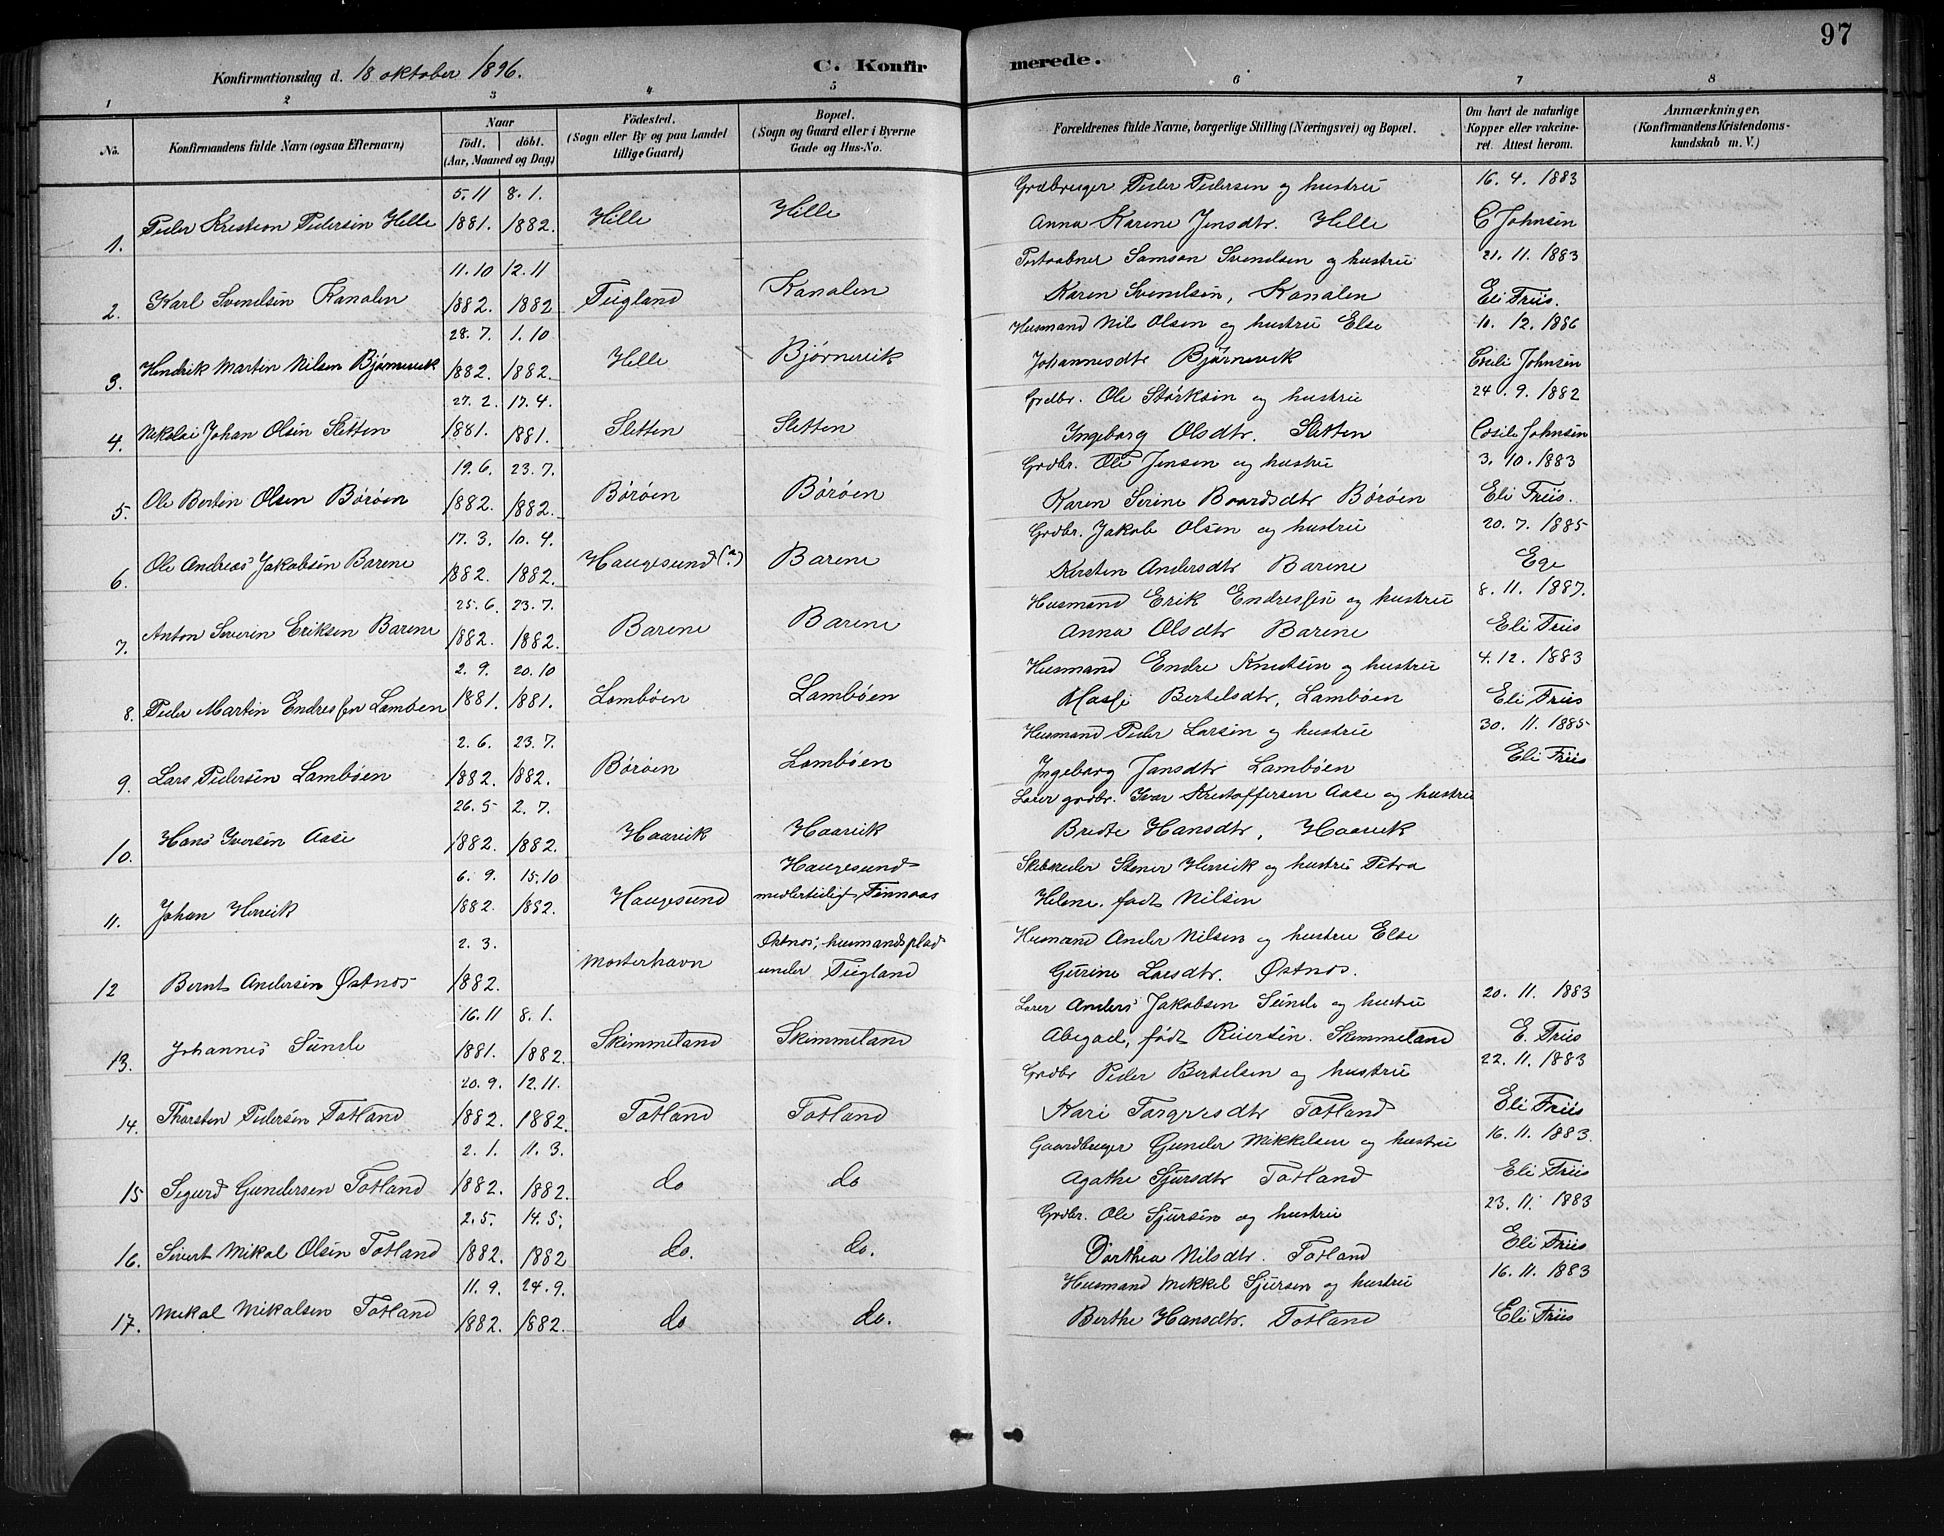 97
Konfirmationsdag d. 18 oktober 1896. C. Konfir merede.
1 2 3 4 5 6 7 8
No. Konfirmandens fulde Navn (ogsaa Efternavn) Naar födt. döbt. (Aar, Maaned og Dag) Födested. (Sogn eller By og paa Landet tillige Gaard) Bopæl. (Sogn og Gaard eller i Byerne Gade og Hus-No. Forældrenes fulde Navne, borgerlige Stilling (Næringsvei) og Bopæl. Om havt de naturlige Kopper eller vakcineret. Attest herom. Anmærkninger, (Konfirmandens Kristendomskundskab m. V.)
5. 11 8. 1. Grdbruger Peder Pedersen og hustru 16. 4. 1883
1. Peder Kristian Pedersen Hille 1881. 1882. Hille Hille Anna Karine Jensdtr. Hille C Johnsen
11. 10 12. 11 Postaabner Samson Svendsen og hustru 21. 11. 1883
2. Karl Svendsen Kanalen 1882. 1882 Fugland Kanalen Karen Svendsen, Kanalen Eli Friis.
28. 7. 1. 10 Husmand Nils Olsen og hustru Else 10. 12. 1886
3. Hendrik Martin Nilsen Bjørnevik 1882. 1882. Hille Bjørnevik Johannesdtr Bjørnevik Cecili Johnsen
27. 2. 17. 4. Grdbr. Ole Størksen og hustru 24. 9. 1882
4. Nikolai Johan Olsen Sletten 1881. 1881. Sletten Sletten Ingeborg Olsdtr. Sletten Cecile Johnsen
19. 6. 23. 7. Grdbr. Ole Jensen og hustru 3. 10. 1883
5. Ole Bertin Olsen Børøen 1882. 1882. Børøen Børøen Karen Serine Baardsdtr Børøen Eli Friis.
17. 3. 10. 4. Grdbr. Jakob Olsen og hustru 20. 7. 1885
6. Ole Andreas Jakobsen Barene 1882. 1882. Haugesund (?) Barene Kirsten Andersdtr Barene Ege
25. 6. 23. 7. Husmand Erik Endressen og hustru 8. 11. 1887.
7. Anton Severin Eriksen Barene 1882. 1882. Barene Barene Anna Olsdtr Barene Eli Friis
2. 9. 20. 10 Husmand Endre Knutsen og hustru 4. 12. 1883
8. Peder Martin Endressen Lambøen 1881. 1881. Lambøen Lambøen Bertelsdtr, Lambøen Eli Friis
2. 6. 23. 7. Husmand Peder Larsen og hustru 30. 11. 1885
9. Lars Pedersen Lambøen 1882. 1882. Børøen Lambøen Ingeborg Jansdtr Lambøen Eli Friis
26. 5 2. 7. Lærer grdbr. Ivar Kristoffersen Aase og hustru
10. Hans Iversen Aase 1882. 1882. Haavik Haavik Bredte Hansdtr, Haavik
6. 9. 15. 10 Haugesund Skibsreder Stener Hervik og hustru Petra
11. Johan Hervik 1882. 1882. Haugesund medlertidig Finnaas Helene. født Nilsen
2. 3. Østnes, husmandsplads Husmand Ander Nilsen og hustru Else
12 Bernt Andersen Østnes 1882. Mosterhavn under Fugland Gurine Larsdtr. Østnes.
16. 11 8. 1. Lærer Anders Jakobsen Sunde og hustru 20. 11. 1883
13. Johannes Sunde 1881. 1882. Skimmeland Skimmeland Abegael, født Reiersen. Skimmeland E. Friis
20. 9. 12. 11. Grdbr Peder Bertelsen og hustru 22. 11. 1883
14. Thorsten Pedersen Totland 1882. 1882. Totland Totland Kari Torgersdtr Totland Eli Friis
2. 1. 11. 3. Gaardbruger Gunder Mikkelsen og hustru 16. 11. 1883.
15 Sigurd Gundersen Totland 1882. 1882. do do Agathe Sjursdtr Totland Eli Friis
2. 5. 14. 5. Grdbr. Ole Sjursen og hustru 23. 11. 1883
16. Sivert Mikal Olsen Totland 1882. 1882 do. do. Dorthea Nilsdtr. Totland Eli Friis
11. 9. 24. 9. Husmand Mikkel Sjursen og hustru 16. 11. 1883
17. Mikal Mikalsen Totland 1882. 1882. do do. Berthe Hansdtr. Totland Eli Friis